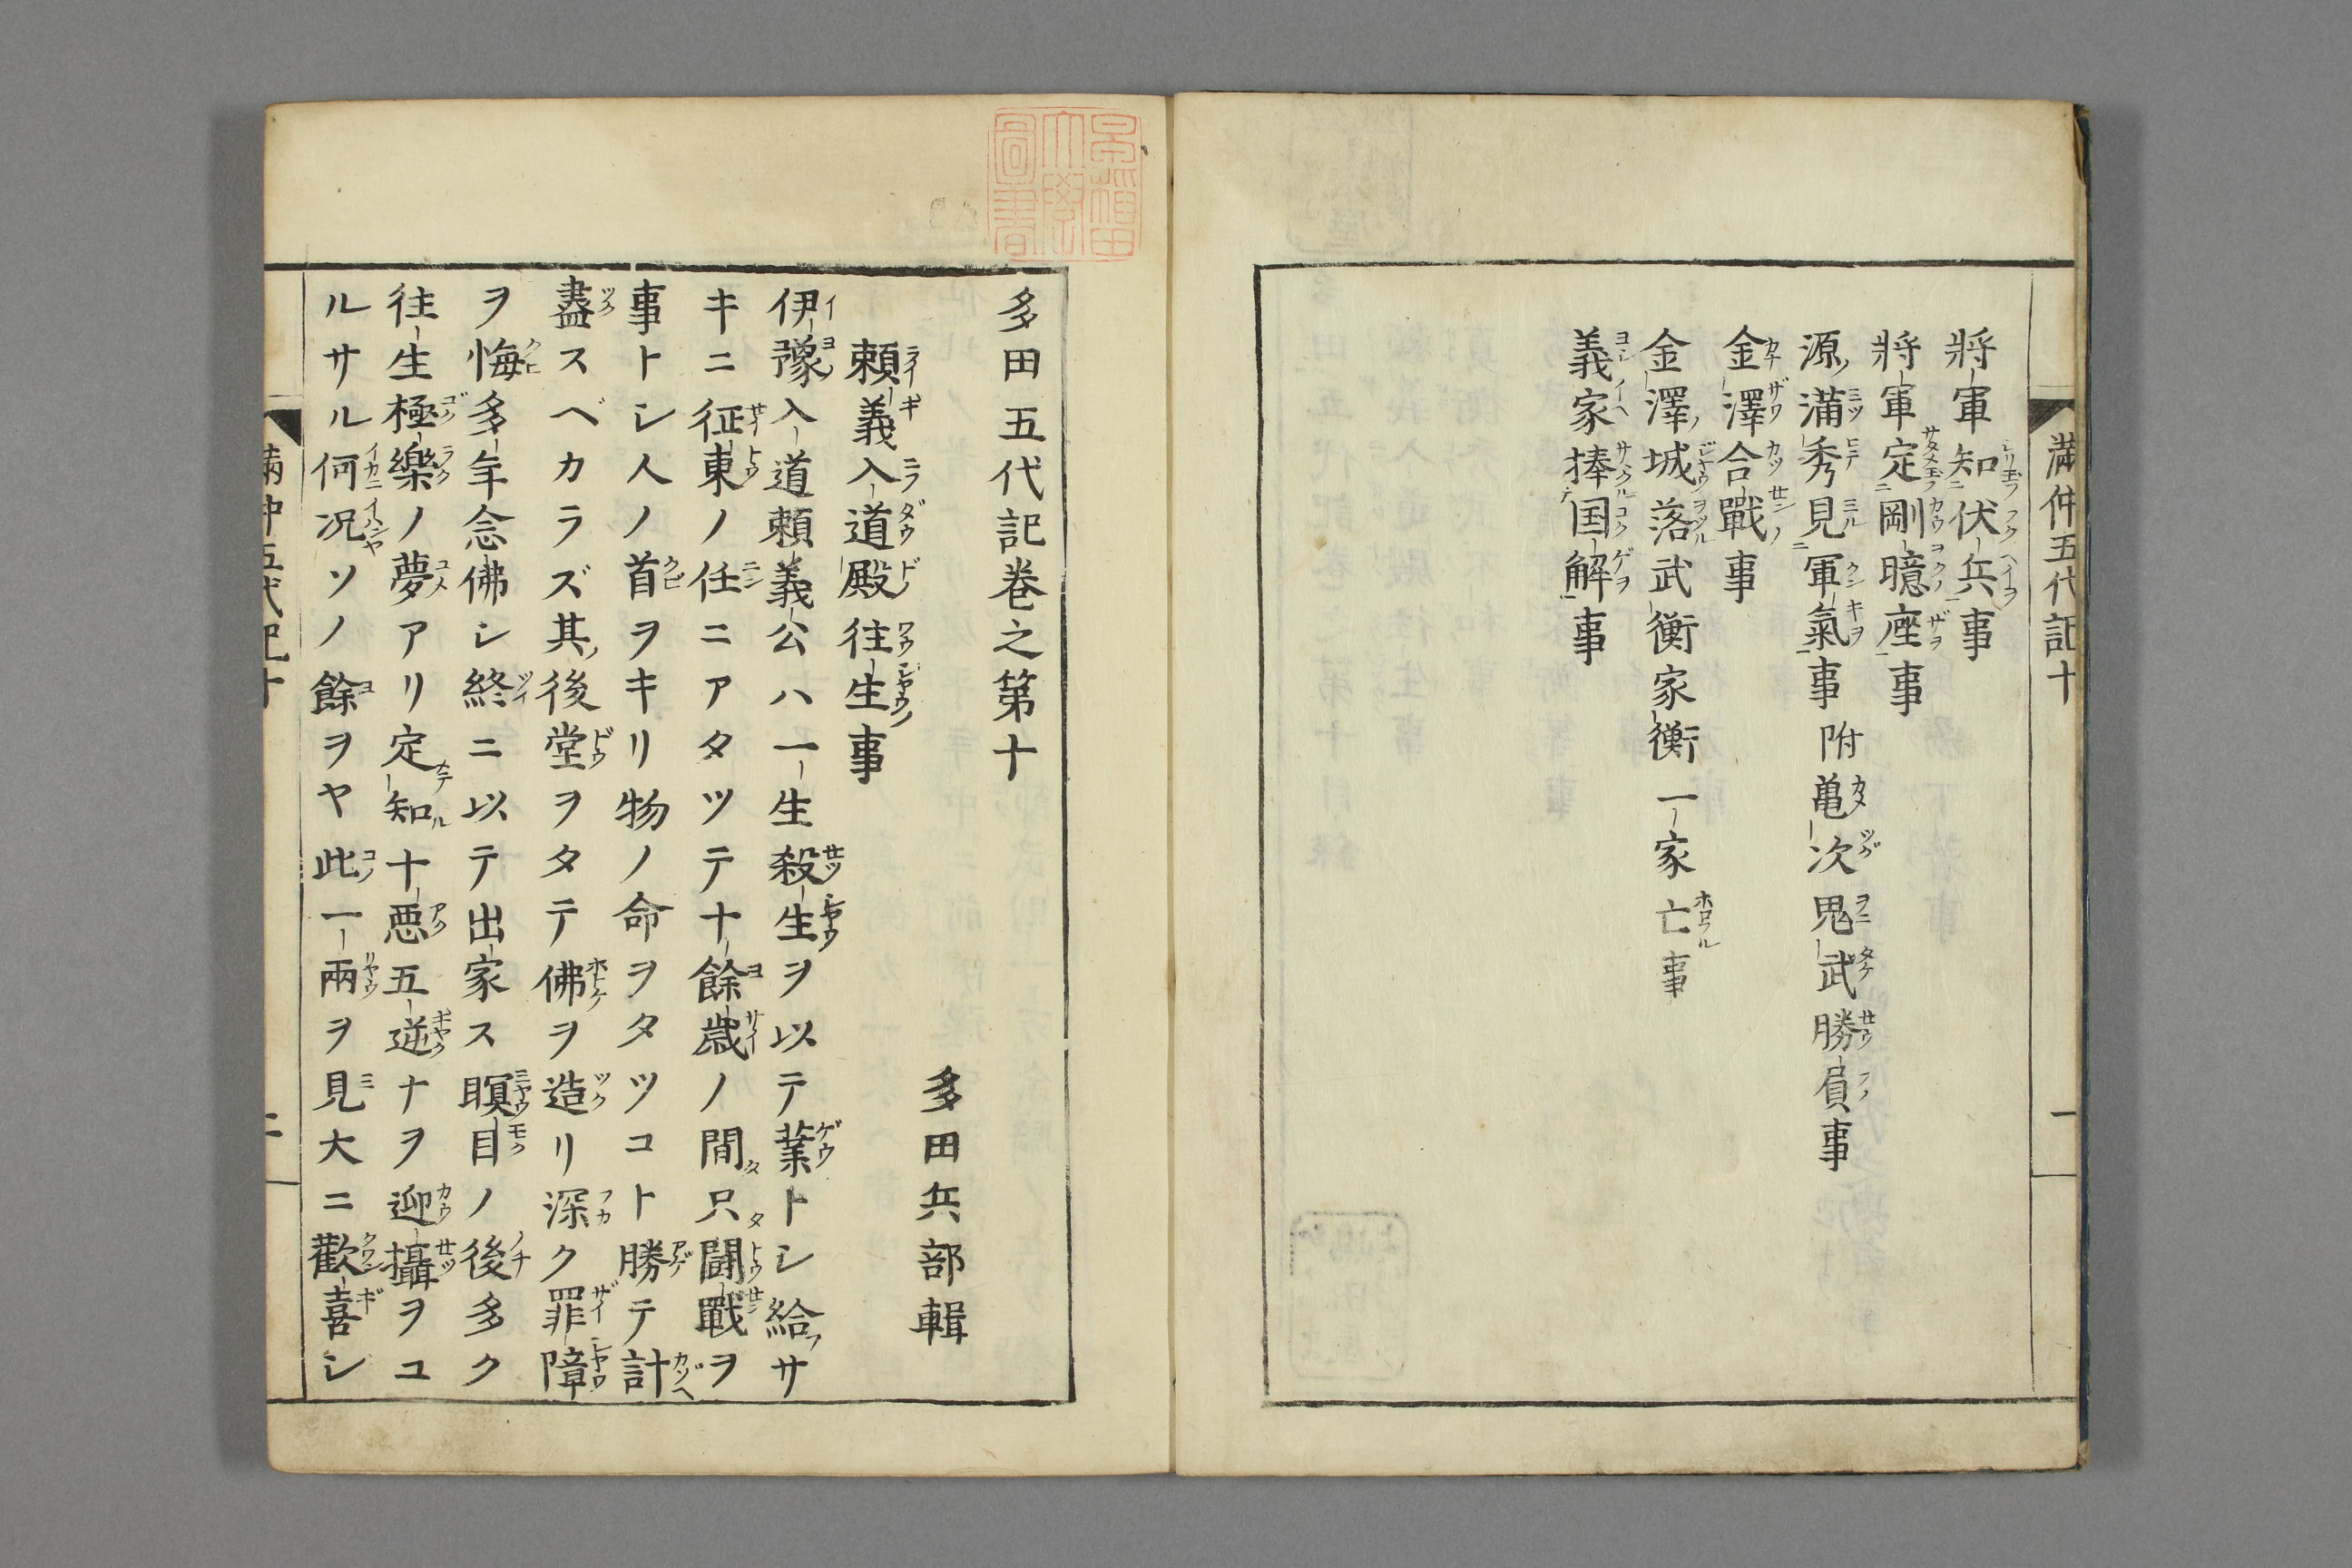 満仲五代記十
一
將軍知伏兵事
將軍定剛臆座事
源満秀見軍氣事附亀次鬼武勝負事
金澤合戰事
金澤城落武衡家衡一家亡事
義家捧国解事
多田五代記巻之第十
多田兵部輯
頼義入道殿往生事
伊豫入道頼義公ハ一生殺生ヲ以テ業トシ給サ
キニ征東ノ任ニアタツテ十餘歳ノ間只闘戰ヲ
事トシ人ノ首ヲキリ物ノ命ヲタツコト勝テ計
盡スベカラズ其後堂ヲタテ佛ヲ造リ深ク罪障
ヲ悔多年念佛シ終ニ以テ出家ス瞑目ノ後多ク
往生極樂ノ夢アリ定知十悪五逆ナヲ迎攝ヲコ
ルサル何況ソノ餘ヲヤ此一兩ヲ見大ニ歡喜シ
満仲五代記十
二
早稲田大學圖書